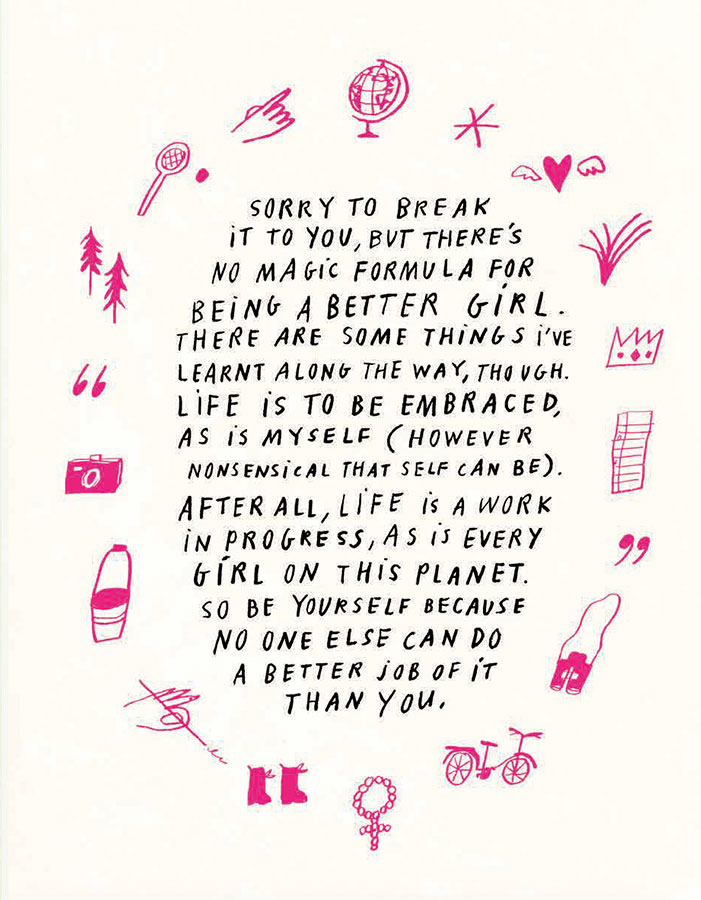 SORRY TO BREAK
IT TO YOU, BUT THERE'S
NO MAGIC FORMULA FOR
BEING A BETTER GIRL.
THERE ARE SOME THINGS I'VE
LEARNT ALONG THE WAY, THOUGH.
LIFE IS TO BE EMBRACED,
AS IS MYSELF (HOWEVER
NONSENSICAL THAT SELF CAN BE).
AFTER ALL, LIFE IS A WORK
IN PROGRESS, AS IS EVERY
GIRL ON THIS PLANET.
SO BE YOURSELF BECAUSE
NO ONE ELSE CAN DO
A BETTER JOB OF IT
THAN YOU.